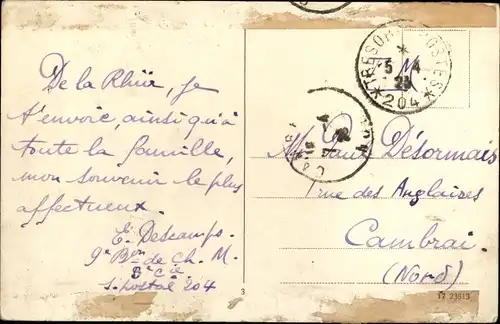 De la Rhür, je
t'envoie, ainsi qu'à
toute la famille,
mon souvenir le plus
affectueux.
E. Descamps.
9e Bon de Ch. M.
3e Cie
s. postal 204
TRESOR POSTES
5 4
23
* 204 *
Paul Désormais
rue des Anglaises
Cambrai.
(Nord)
3